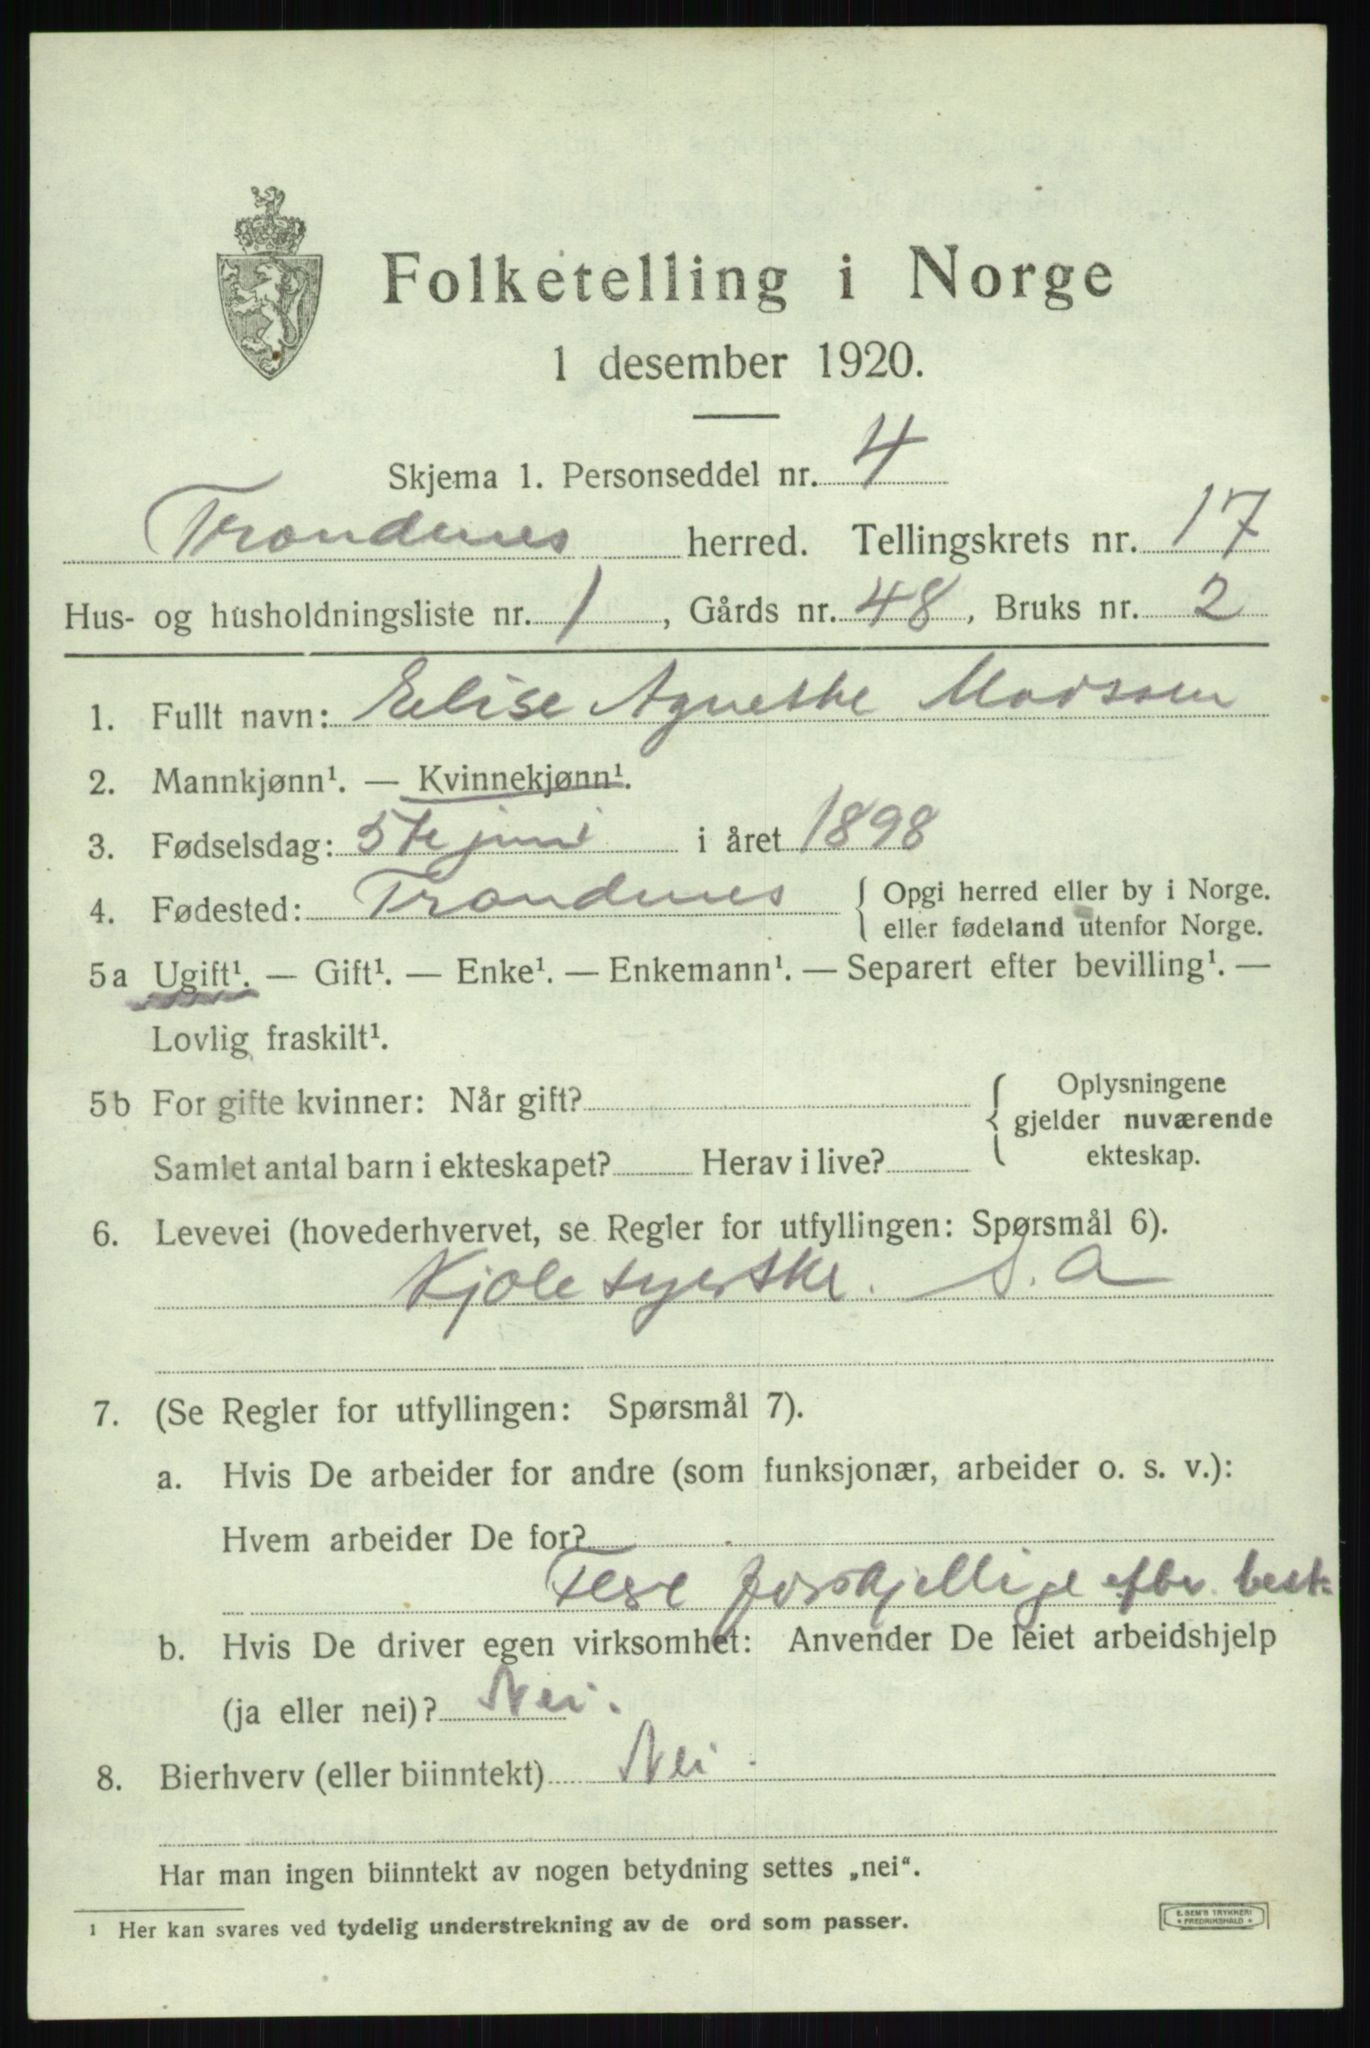 Folketelling i Norge
1 desember 1920.
Skjema 1. Personseddel nr. 4
Trondenes herred. Tellingskrets nr. 17
Hus- og husholdningsliste nr. 1, Gårds nr. 48, Bruks nr. 2
1. Fullt navn: Elise Agnethe Madssen
2. Mannkjønn¹. — Kvinnekjønn¹.
3. Fødselsdag: 5te juni i året 1898
4. Fødested: Trondenes { Opgi herred eller by i Norge.
eller fødeland utenfor Norge.
5a Ugift¹. — Gift¹. — Enke¹. — Enkemann¹. — Separert efter bevilling¹. —
Lovlig fraskilt¹.
5b For gifte kvinner: Når gift? { Oplysningene
gjelder nuværende
Samlet antal barn i ekteskapet? Herav i live? ekteskap.
6. Levevei (hovederhvervet, se Regler for utfyllingen: Spørsmål 6).
Kjolesyerske. S. A
7. (Se Regler for utfyllingen: Spørsmål 7).
a. Hvis De arbeider for andre (som funksjonær, arbeider o. s. v.):
Hvem arbeider De for?
forskjellige efter best.
b. Hvis De driver egen virksomhet: Anvender De leiet arbeidshjelp
(ja eller nei)? Nei.
8. Bierhverv (eller biinntekt) Nei
Har man ingen biinntekt av nogen betydning settes „nei“.
¹ Her kan svares ved tydelig understrekning av de ord som passer.
E. SEM'S TRYKKERI
FREDRIKSHALD